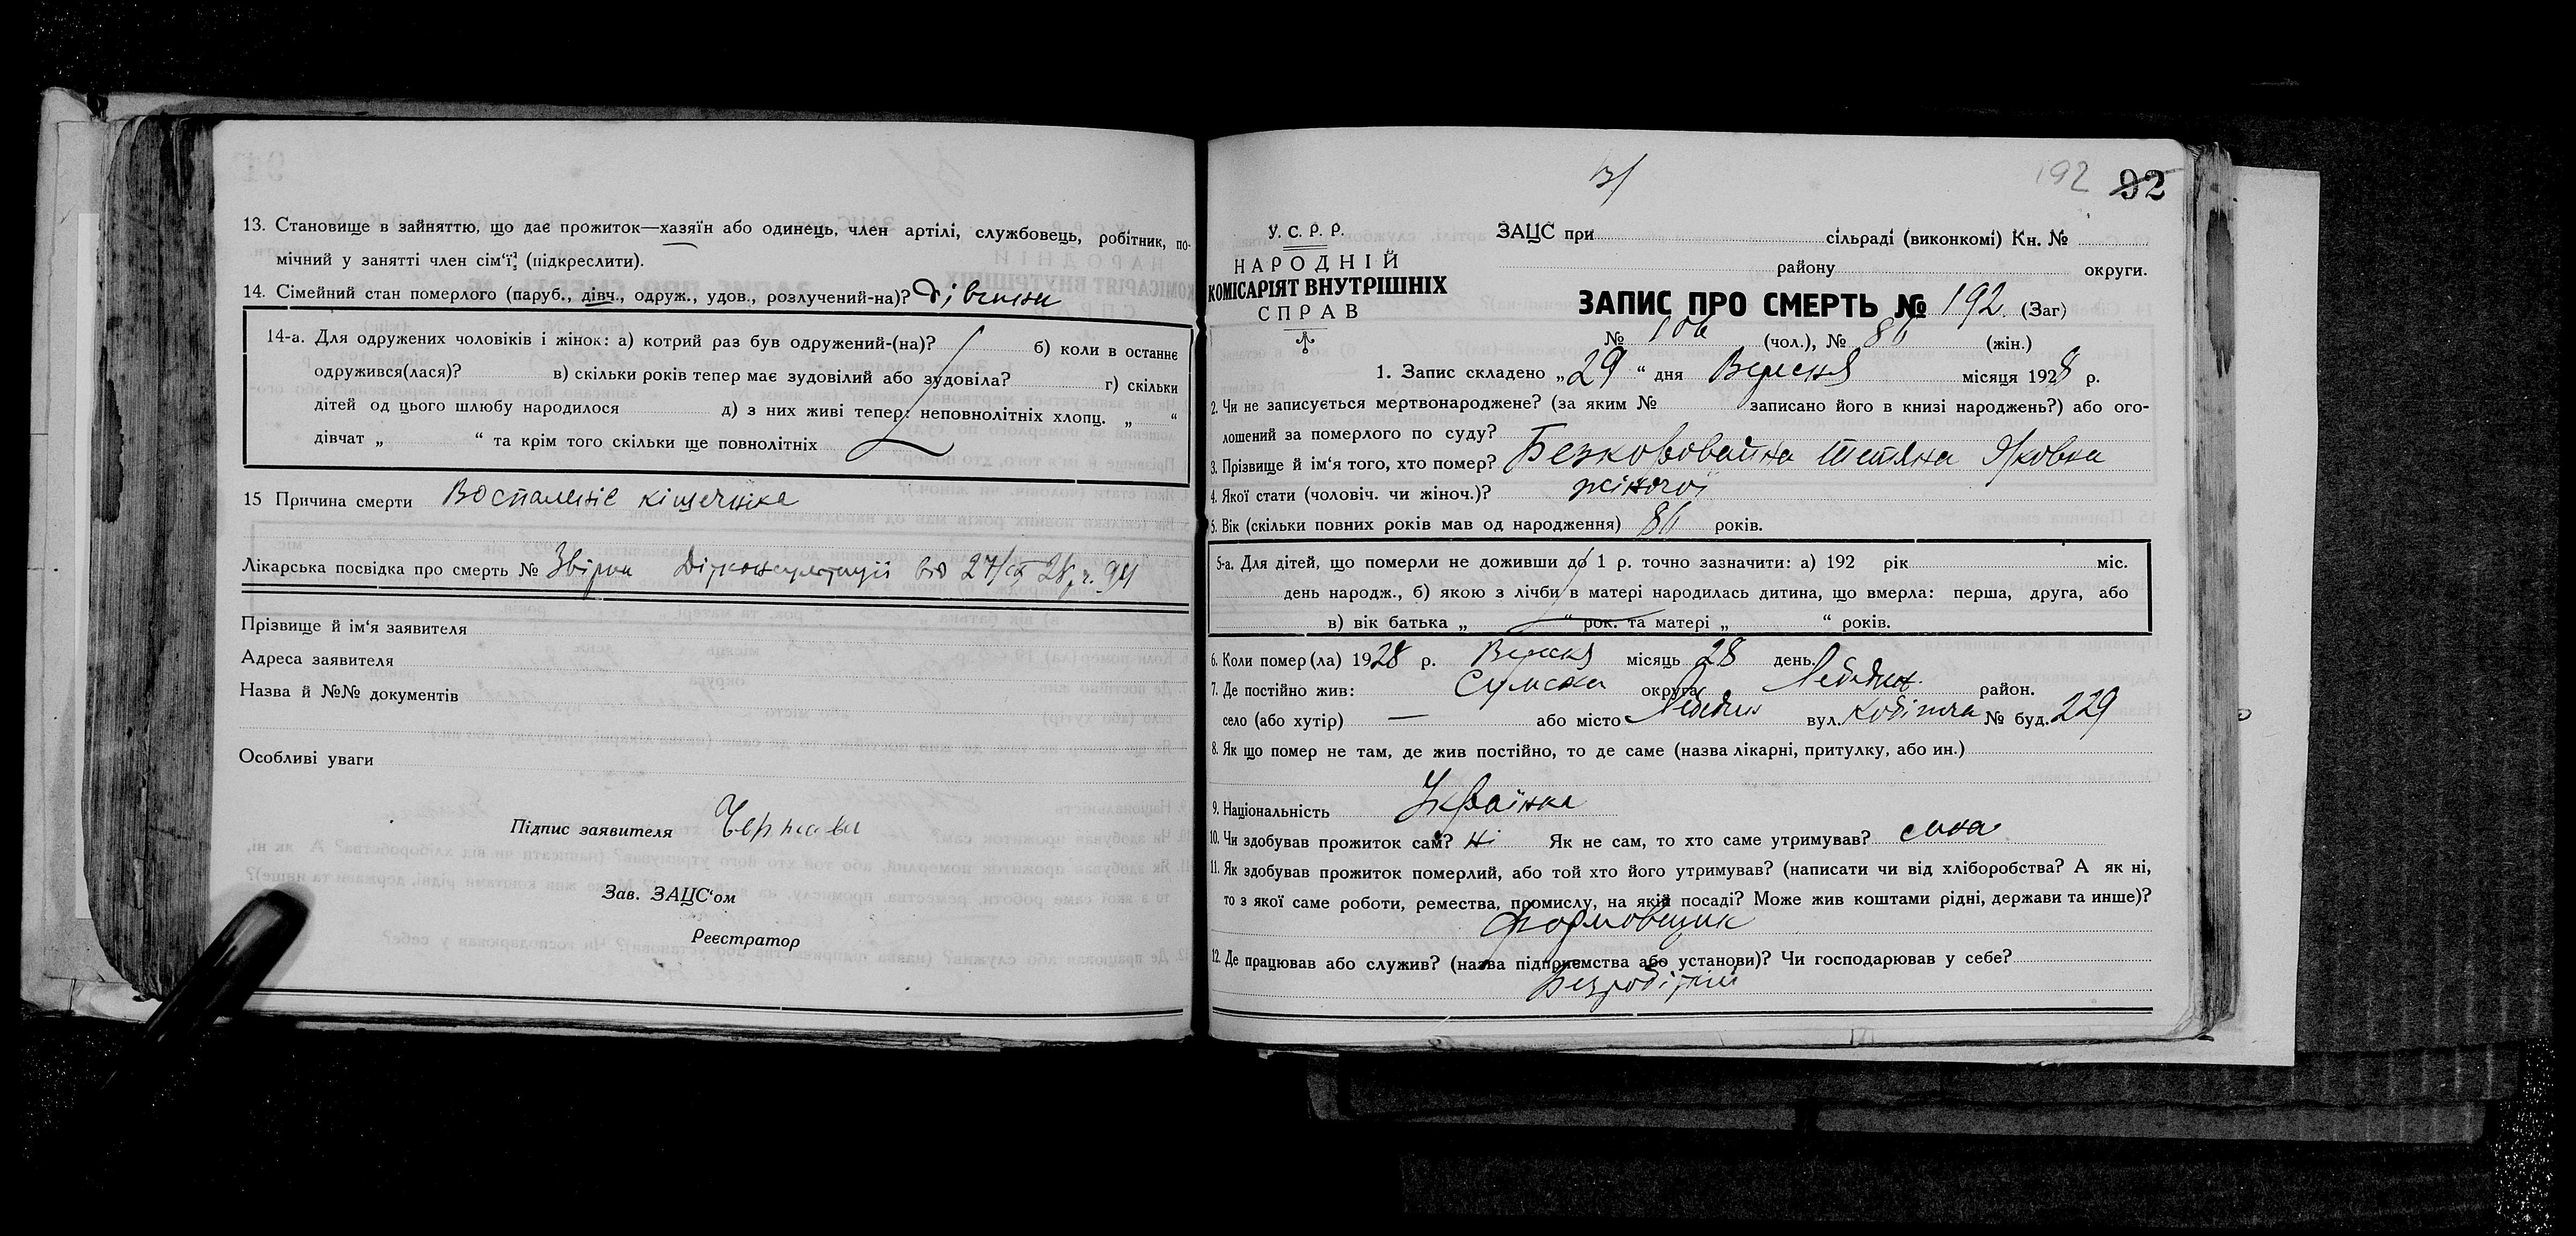 13. Становище в зайняттю, що дає прожиток—хазяїн або одинець, член артілі, службовець, робітник, по-
мічний у занятті член сім‘ї, (підкреслити).
14. Сімейний стан померлого (паруб., дівч., одруж., удов., розлучений-на)?
14-а. Для одружених чоловіків і жінок: а) котрий раз був одружений-(на)? б) коли в останнє
одружився(лася)? в) скільки років тепер має зудовілий або зудовіла? г) скільки
дітей од цього шлюбу народилося д) з них живі тепер: неповнолітніх хлопц. „ “
дівчат „ “ та крім того скільки ще повнолітніх
15 Причина смерти Воспаление кішечника
Лікарська посвідка про смерть № Звірки Дітконсультації від 27/IX 28 р. ч. 94
Прізвище й ім‘я заявителя
Адреса заявителя
Назва й №№ документів
Особливі уваги
Підпис заявителя
Зав. ЗАЦС‘ом
Реєстратор
192 92
У. С. Р. Р.
НАРОДНІЙ
КОМІСАРІЯТ ВНУТРІШНІХ
СПРАВ
ЗАЦС при сільраді (виконкомі) Кн. №
району округи.
ЗАПИС ПРО СМЕРТЬ № 192 (Заг)
№ 106 (чол.), № 86 (жін.)
1. Запис складено „29“ дня Вересня місяця 1928 р.
2. Чи не записується мертвонароджене? (за яким № записано його в книзі народжень?) або ого-
лошений за померлого по суду?
3. Прізвище й ім‘я того, хто помер? Безкоровайна Тетяна Яковна
4. Якої стати (чоловіч. чи жіноч.)? жіночої
5. Вік (скільки повних років мав од народження) років.
5-а. Для дітей, що померли не доживши до 1 р. точно зазначити: а) 192 рік міс.
день народж., б) якою з лічби в матері народилась дитина, що вмерла: перша, друга, або
в) вік батька „ “ рок. та матері „ “ років.
6. Коли помер(ла) 1928 р. Вересня місяць 28 день.
7. Де постійно жив: Сумська округа Лебедин. район.
село (або хутір) — або місто Лебедин вул. № буд. 229
8. Як що помер не там, де жив постійно, то де саме (назва лікарні, притулку, або ин.)
9. Національність Українка
10. Чи здобував прожиток сам? ні Як не сам, то хто саме утримував?
11. Як здобував прожиток померлий, або той хто його утримував? (написати чи від хліборобства? А як ні,
то з якої саме роботи, ремества, промислу, на якій посаді? Може жив коштами рідні, держави та инше)?
формовщик
12. Де працював або служив? (назва підприємства або установи)? Чи господарював у себе?
Безробітній